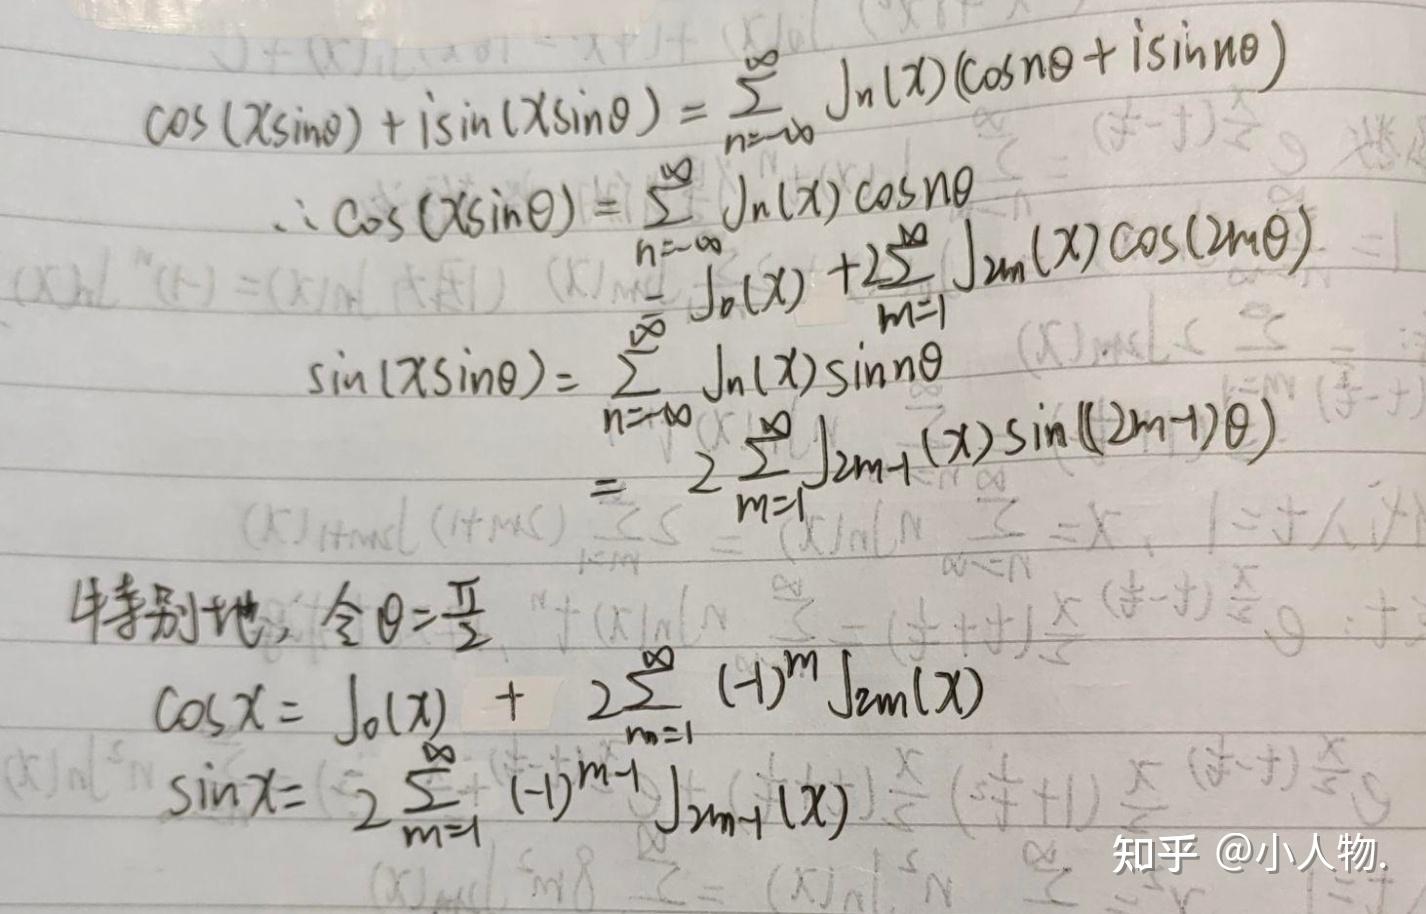 cos(xsinθ)+isin(xsinθ) = ∑_{n=-∞}^{∞} J_n(x)(cosnθ+isinnθ)
∴ cos(xsinθ) = ∑_{n=-∞}^{∞} J_n(x)cosnθ
= J_0(x) + 2∑_{m=1}^{∞} J_{2m}(x)cos(2mθ)
sin(xsinθ) = ∑_{n=-∞}^{∞} J_n(x)sinnθ
= 2∑_{m=1}^{∞} J_{2m-1}(x)sin((2m-1)θ)
特别地, 令θ=π/2
cosx = J_0(x) + 2∑_{m=1}^{∞} (-1)^m J_{2m}(x)
sinx = 2∑_{m=1}^{∞} (-1)^{m-1} J_{2m-1}(x)
知乎 @小人物.